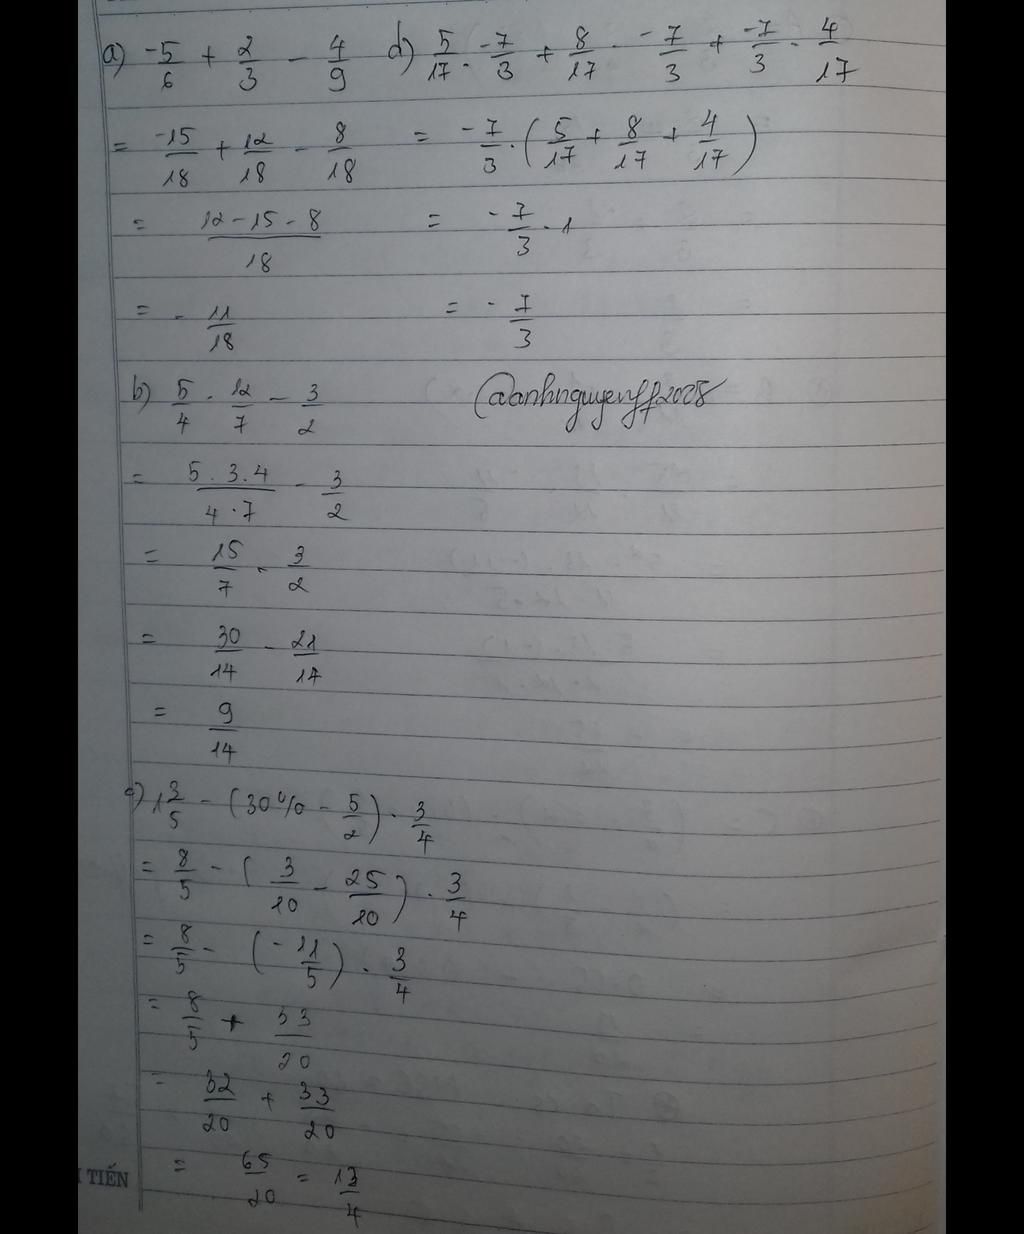 a) -5/6 + 2/3 - 4/9
= -15/18 + 12/18 - 8/18
= (12 - 15 - 8)/18
= - 11/18
d) 5/17 . -7/3 + 8/17 . -7/3 + -7/3 . 4/17
= -7/3 . (5/17 + 8/17 + 4/17)
= -7/3 . 1
= -7/3
b) 5/4 . 12/7 - 3/2
= (5 . 3 . 4)/(4 . 7) - 3/2
= 15/7 - 3/2
= 30/14 - 21/14
= 9/14
@danhnguyenff2008
c) 1 3/5 - (30% - 5/2) . 3/4
= 8/5 - (3/10 - 25/10) . 3/4
= 8/5 - (-11/5) . 3/4
= 8/5 + 33/20
= 32/20 + 33/20
= 65/20 = 13/4
TIẾN